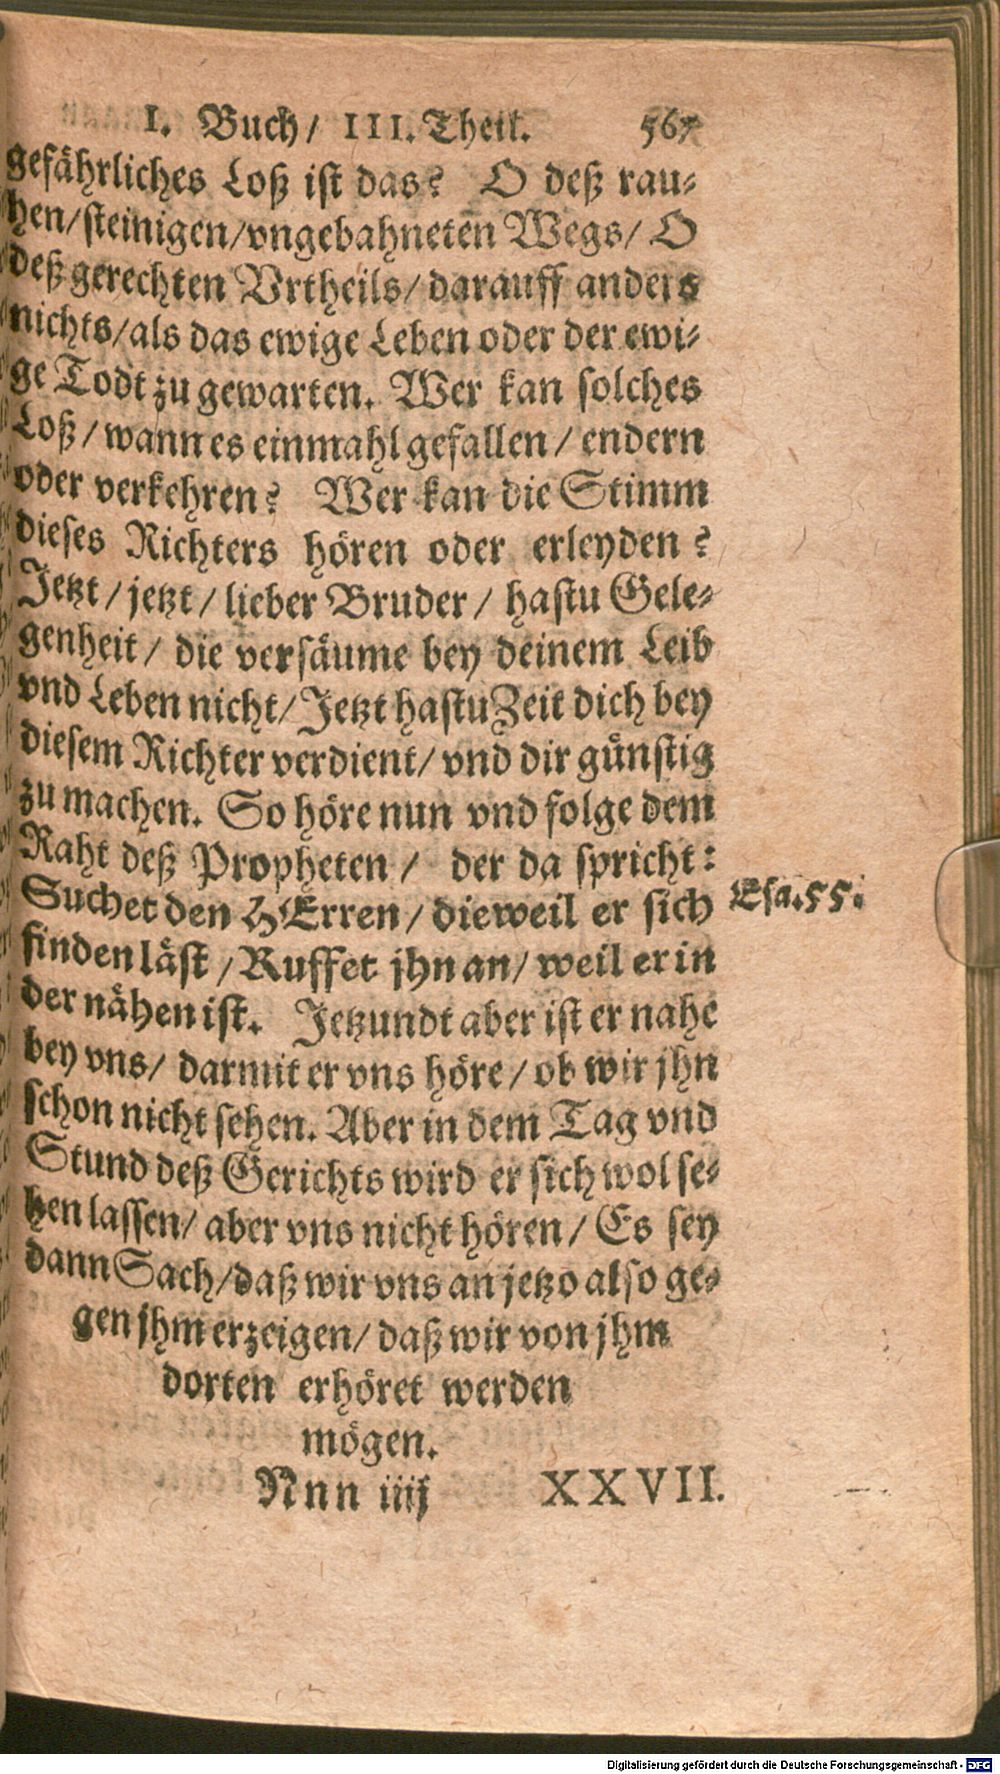 I. Buch/ III. Theil. 567
gefährliches Loß ist das? O deß rau-
hen/steinigen/vngebahneten Wegs/ O
deß gerechten Vrtheils/ darauff anders
nichts/als das ewige Leben oder der ewi-
ge Todt zu gewarten. Wer kan solches
Loß/wann es einmahl gefallen/ endern
oder verkehren? Wer kan die Stimm
dieses Richters hören oder erleyden?
Jetzt/jetzt/lieber Bruder/ hastu Gele-
genheit/ die versäume bey deinem Leib
vnd Leben nicht/Jetzt hastu Zeit dich bey
diesem Richter verdient/ vnd dir günstig
zu machen. So höre nun vnd folge dem
Raht deß Propheten/ der da spricht:
Suchet den HErren/dieweil er sich Esa.55.
finden läst/Ruffet jhn an/ weil er in
der nähen ist. Jetzundt aber ist er nahe
bey vns/ darmit er vns höre/ob wir jhn
schon nicht sehen. Aber in dem Tag vnd
Stund deß Gerichts wird er sich wol se-
hen lassen/ aber vns nicht hören/ Es sey
dann Sach/daß wir vns an jetzo also ge-
gen jhm erzeigen/ daß wir von jhm
dorten erhöret werden
mögen.
Nnn iiij XXVII.
Digitalisierung gefördert durch die Deutsche Forschungsgemeinschaft - DFG